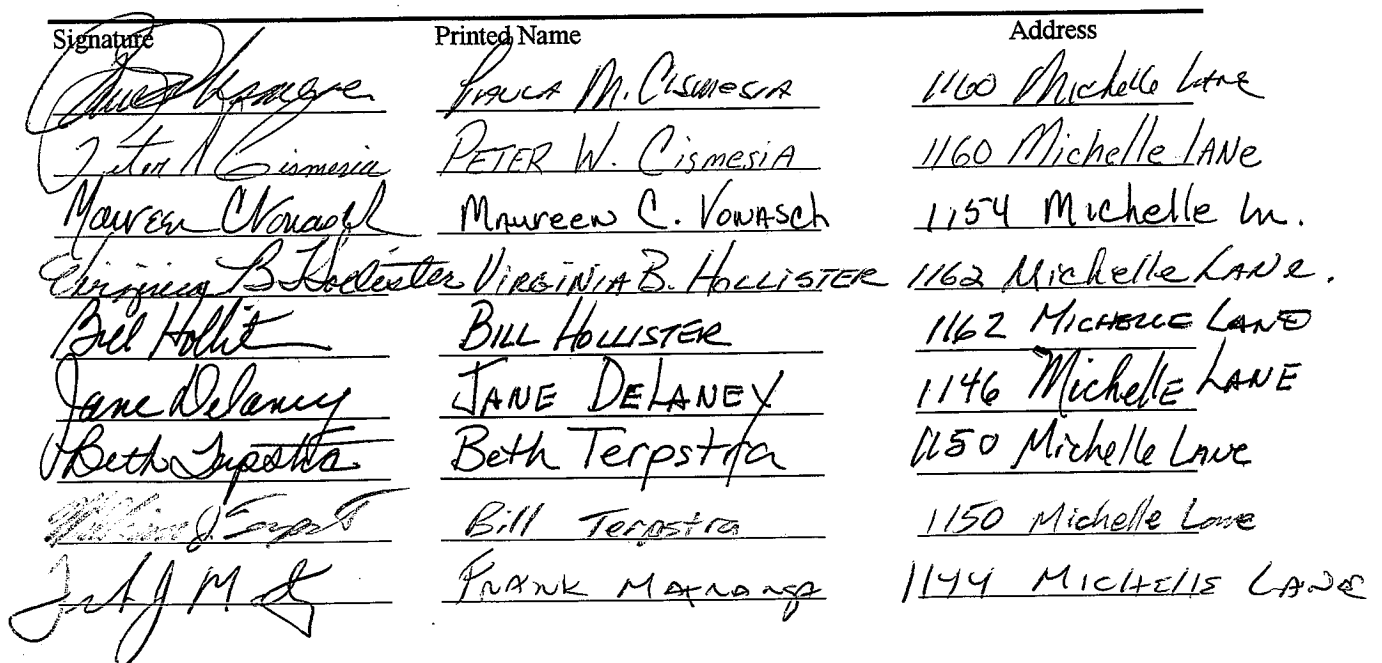 Signature Printed Name Address
Paula M. Cismesia 1160 Michelle Lane
Peter W Cismesia PETER W. CismesiA 1160 Michelle LANe
Maureen C Vonasch Maureen C. Vonasch 1154 Michelle Ln.
Virginia B Hollister VIRGINIA B. HOLLISTER 1162 Michelle LANe.
Bill Hollister BILL HOLLISTER 1162 MICHELLE LANE
Jane Delaney JANE DELANEY 1146 MichellE LANE
Beth Terpstra Beth Terpstra 1150 Michelle Lane
William J. Bill Terpstra 1150 Michelle Lane
FRANK 1144 MICHElle LANE